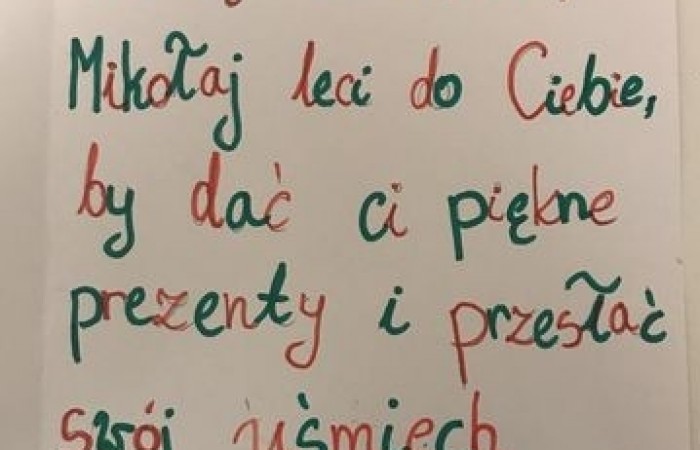 Mikołaj leci do Ciebie,
by dać ci piękne
prezenty i przesłać
swój uśmiech